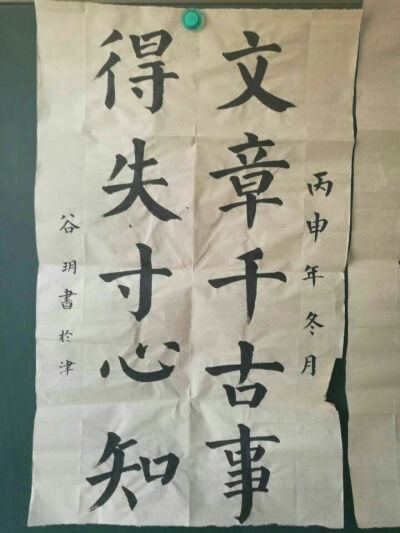 丙申年冬月
文章千古事
得失寸心知
谷玥書於津